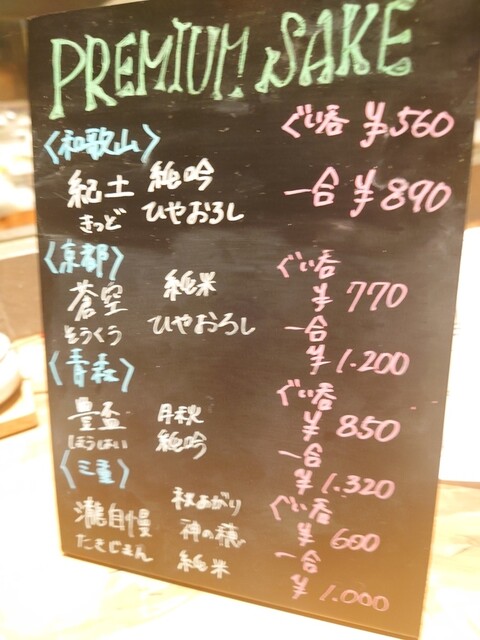 PREMIUM SAKE
〈和歌山〉
紀土 純吟 ぐい呑 ¥560
きっど ひやおろし 一合 ¥890
〈京都〉
蒼空 純米 ぐい呑 ¥770
そうくう ひやおろし 一合 ¥1.200
〈青森〉
豊盃 月秋 ぐい呑 ¥850
ほうはい 純吟 一合 ¥1.320
〈三重〉
瀧自慢 秋あがり ぐい呑 ¥600
たきじまん 神の穂 一合 ¥1.000
純米